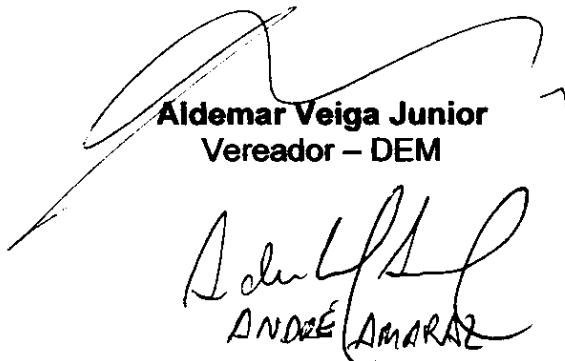 Aldemar Veiga Junior
Vereador – DEM
ANDRÉ AMARAL